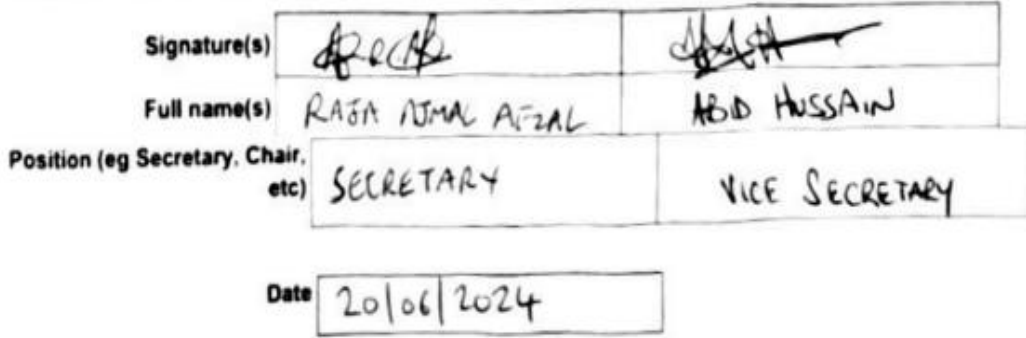 Signature(s)
Full name(s) RAJA AJMAL AFZAL ABID HUSSAIN
Position (eg Secretary, Chair,
etc) SECRETARY VICE SECRETARY
Date 20/06/2024